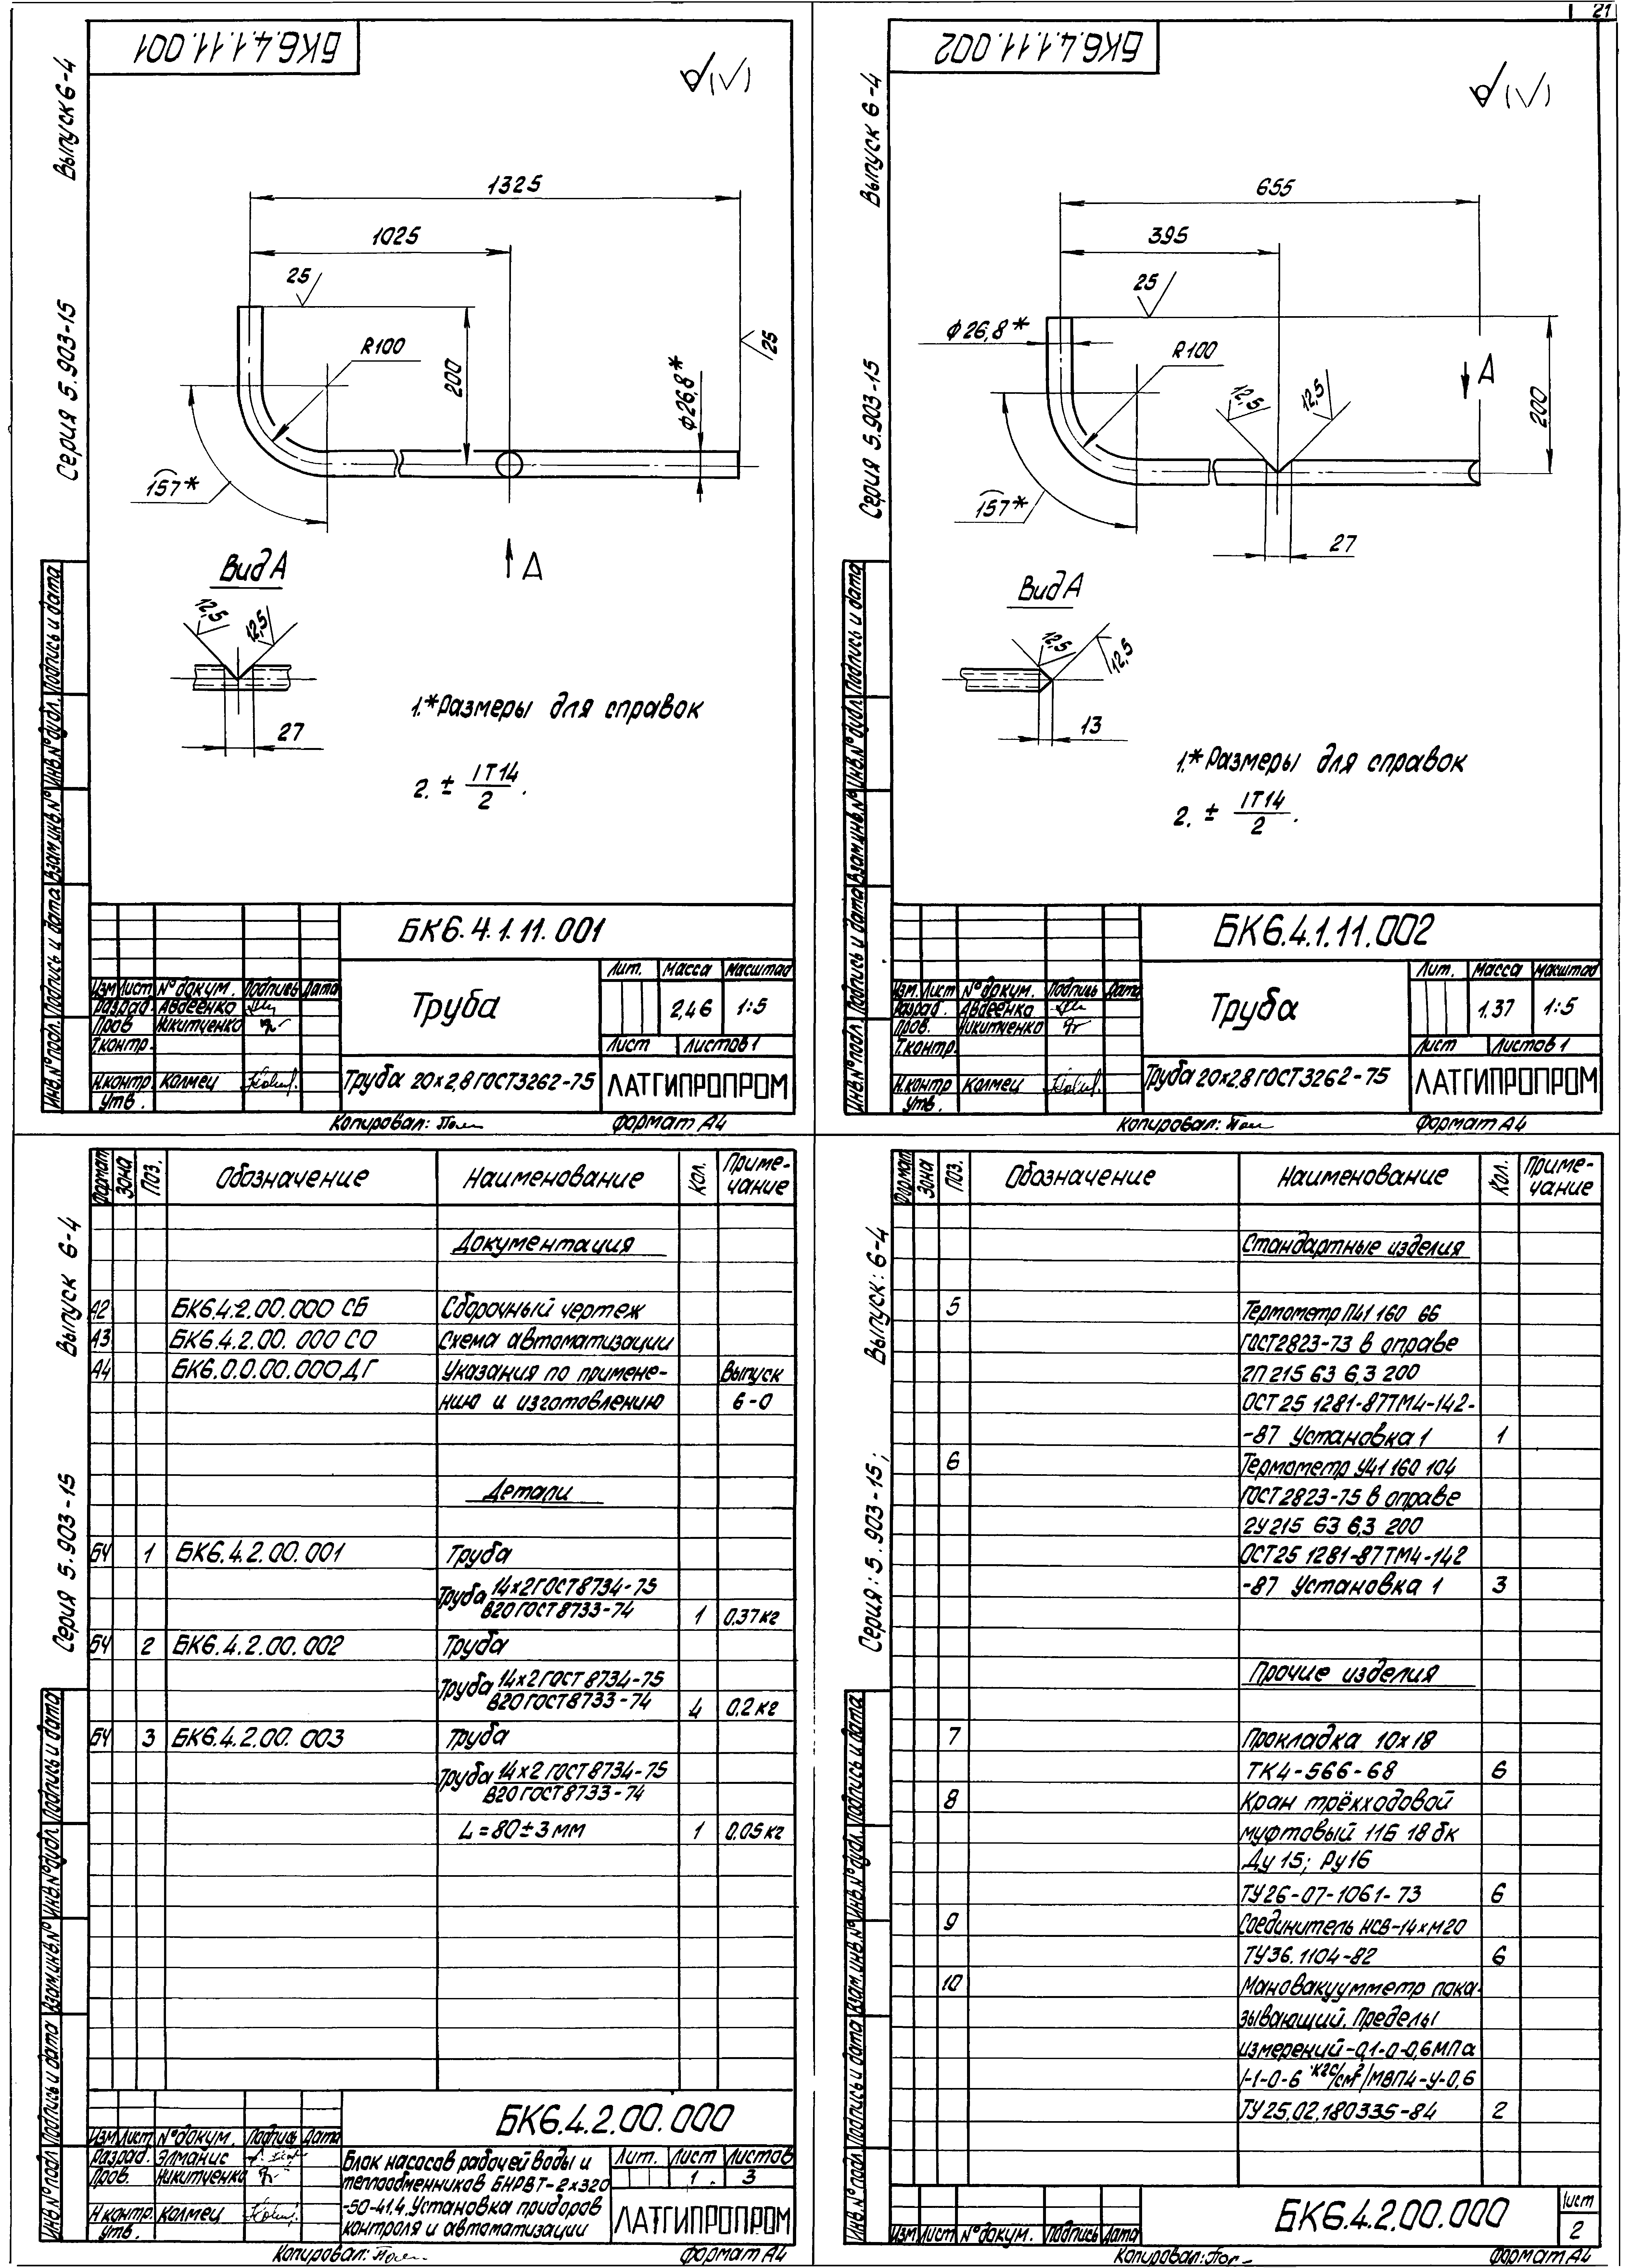 21
БК6.4.1.11.001
Выпуск 6-4
Серия 5.903-15
1325
1025
25
R100
200
⌀26,8*
25
157*
А
Вид А
12,5
12,5
27
1.*Размеры для справок
2. ± IT14/2.
Инв.N°подл. Подпись и дата Взам.инв.N° Инв.N°дубл. Подпись и дата
БК6.4.1.11.001
Изм Лист N°докум. Подпись Дата
Разраб. Авдеенко
Пров Никитченко
Т.контр.
Н.контр Калмец
Утв.
Труба
Лит. Масса Масштаб
2,46 1:5
Лист Листов 1
Труба 20х2,8 ГОСТ3262-75
ЛАТГИПРОПРОМ
Копировал:
Формат А4
БК6.4.1.11.002
Выпуск 6-4
Серия 5.903-15
655
395
25
⌀26,8*
R100
12,5
12,5
А
200
157*
27
Вид А
12,5
12,5
13
1.*Размеры для справок
2. ± IT14/2.
Инв.N°подл. Подпись и дата Взам.инв.N° Инв.N°дубл. Подпись и дата
БК6.4.1.11.002
Изм. Лист N°докум. Подпись Дата
Разраб. Авдеенко
Пров. Никитченко
Т.контр.
Н.контр Калмец
Утв.
Труба
Лит. Масса Масштаб
1,37 1:5
Лист Листов 1
Труба 20х2,8 ГОСТ3262-75
ЛАТГИПРОПРОМ
Копировал:
Формат А4
Выпуск 6-4
Серия 5.903-15
Формат Зона Поз. Обозначение Наименование Кол. Приме-
чание
Документация
А2 БК6.4.2.00.000 СБ Сборочный чертеж
А3 БК6.4.2.00.000 СО Схема автоматизации
А4 БК6.0.0.00.000ДГ Указания по примене- Выпуск
нию и изготовлению 6-0
Детали
БЧ 1 БК6.4.2.00.001 Труба
Труба 14х2 ГОСТ8734-75
В20 ГОСТ8733-74 1 0,37кг
БЧ 2 БК6.4.2.00.002 Труба
Труба 14х2 ГОСТ8734-75
В20 ГОСТ8733-74 4 0,2кг
БЧ 3 БК6.4.2.00.003 Труба
Труба 14х2 ГОСТ8734-75
В20 ГОСТ8733-74
L=80±3мм 1 0,05кг
Инв.N°подл. Подпись и дата Взам.инв.N° Инв.N°дубл. Подпись и дата
БК6.4.2.00.000
Изм Лист N°докум. Подпись Дата
Разраб. Элманис
Пров. Никитченко
Н.контр. Калмец
Утв.
Блок насосов рабочей воды и
теплообменников БНРВТ-2х320
-50-41.4. Установка приборов
контроля и автоматизации
Лит. Лист Листов
1 3
ЛАТГИПРОПРОМ
Копировал:
Формат А4
Выпуск: 6-4
Серия: 5.903-15;
Формат Зона Поз. Обозначение Наименование Кол. Приме-
чание
Стандартные изделия
5 Термометр П41 160 66
ГОСТ2823-73 в оправе
2П 215 63 6,3 200
ОСТ 25 1281-87ТМ4-142-
-87 Установка 1 1
6 Термометр У41 160 104
ГОСТ2823-75 в оправе
2У 215 63 6,3 200
ОСТ25 1281-87ТМ4-142
-87 Установка 1 3
Прочие изделия
7 Прокладка 10х18
ТК4-566-68 6
8 Кран трёхходовой
муфтовый 11Б 18 бк
Ду 15; Ру16
ТУ26-07-1061-73 6
9 Соединитель НСВ-14хМ20
ТУ36.1104-82 6
10 Мановакуумметр пока-
зывающий. Пределы
измерений-0,1-0-0,6МПа
/-1-0-6 кгс/см²/МВП4-У-0,6
ТУ25.02.180335-84 2
Инв.N°подл. Подпись и дата Взам.инв.N° Инв.N°дубл. Подпись и дата
Изм Лист N°докум. Подпись Дата
БК6.4.2.00.000
Лист
2
Копировал:
Формат А4